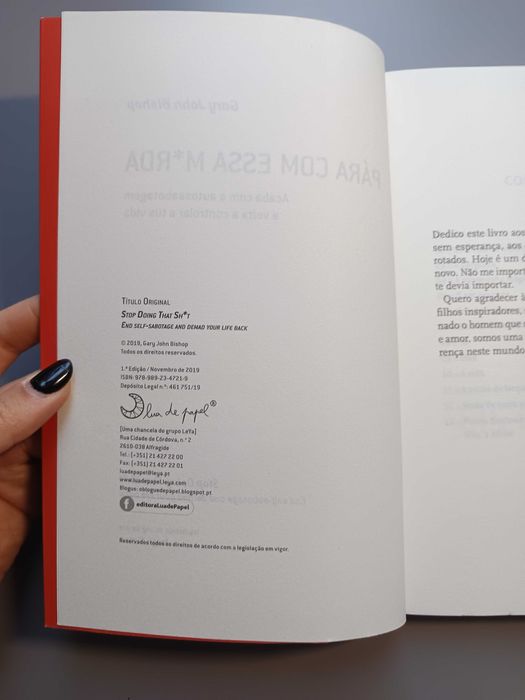 Gary John Bishop
PÁRA COM ESSA M*RDA
Acaba com a autossabotagem
e volta a controlar a tua vida
TÍTULO ORIGINAL
STOP DOING THAT SH*T
END SELF-SABOTAGE AND DEMAD YOUR LIFE BACK
© 2019, Gary John Bishop
Todos os direitos reservados.
1.ª Edição / Novembro de 2019
ISBN: 978-989-23-4721-9
Depósito Legal n.º: 461 751/19
lua de papel®
[Uma chancela do grupo LeYa]
Rua Cidade de Córdova, n.º 2
2610-038 Alfragide
Tel.: (+351) 21 427 22 00
Fax: (+351) 21 427 22 01
luadepapel@leya.pt
www.luadepapel.leya.com
Blogue: obloguedepapel.blogspot.pt
editoraLuadePapel
Reservados todos os direitos de acordo com a legislação em vigor.
Dedico este livro aos
sem esperança, aos
rotados. Hoje é um d
novo. Não me import
te devia importar.
Quero agradecer à
filhos inspiradores,
nado o homem que s
e amor, somos uma
rença neste mundo